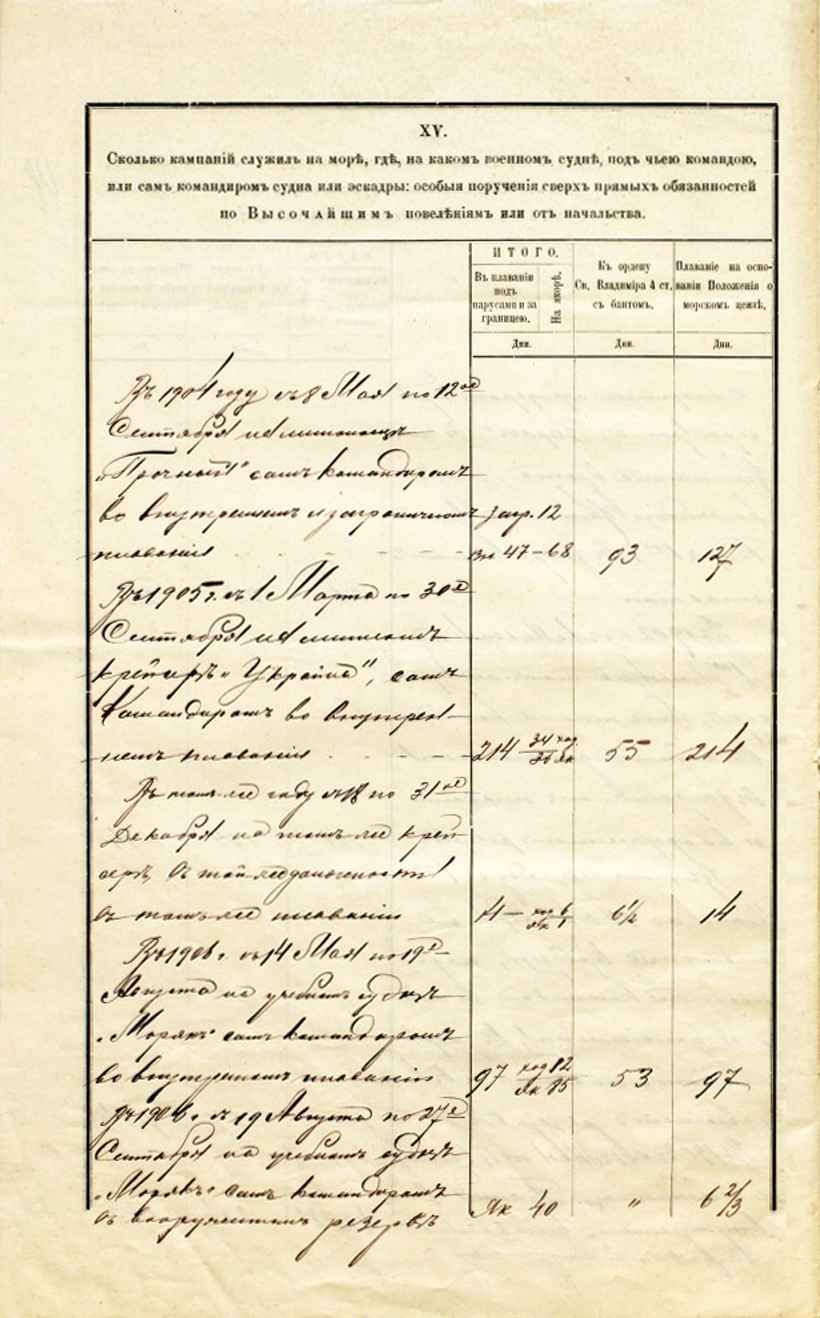 XV.
Сколько кампаній служилъ на морѣ, гдѣ, на какомъ военномъ суднѣ, подъ чьею командою,
или самъ командиромъ судна или эскадры: особыя порученія сверхъ прямыхъ обязанностей
по Высочайшимъ повелѣніямъ или отъ начальства.
ИТОГО.
Въ плаваніи
подъ
парусами и за
границею.
На якорѣ.
Къ ордену
Св. Владиміра 4 ст.
съ бантомъ.
Плаваніе на осно-
ваніи Положенія о
морскомъ цензѣ.
Дни.
Дни.
Дни.
Въ 1904 году съ 8 Мая по 12ое
Сентября на миноносцѣ
„Прочный" самъ командиромъ
во внутреннемъ и заграничномъ загр. 12
плаваніи вн 47 – 68 93 127
Въ 1905 г. съ 1 Марта по 30е
Сентября на минномъ
крейсерѣ „Украйна", самъ
Командиромъ во внутрен-
немъ плаваніи 214 34 ход 55 214
Въ томъ же году съ 18 по 31ое
Декабря на томъ же крей
серѣ, въ той же должности
въ томъ же плаваніи – ход 6 6½ 14
як
Въ 1906 г. съ 14 Мая по 19е
Августа на учебномъ суднѣ
„Морякъ" самъ командиромъ
во внутреннемъ плаваніи 97 ход 12 53 97
як 85
Въ 1906 г. съ 19 Августа по 27е
Сентября на учебномъ суднѣ
„Морякъ" самъ командиромъ
въ вооруженномъ резервѣ Як 40 " 6 2/3